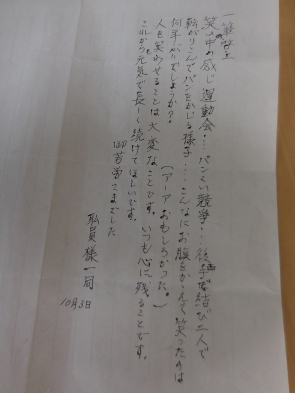 一筆啓上
笑いの中の感じ運動会‥‥パンくい競争‥‥後手で結び二人で
転がりこんでパンをかじる様子‥‥こんなにお腹をかゝえて笑ったのは
何年ぶりでしょうか?
(アーアおもしろかった。)
人を笑わせることは大変なことです。いつも心に残ることです。
これからも元気で長ーく続けてほしいです。
御苦労さまでした
職員様一同
10月3日